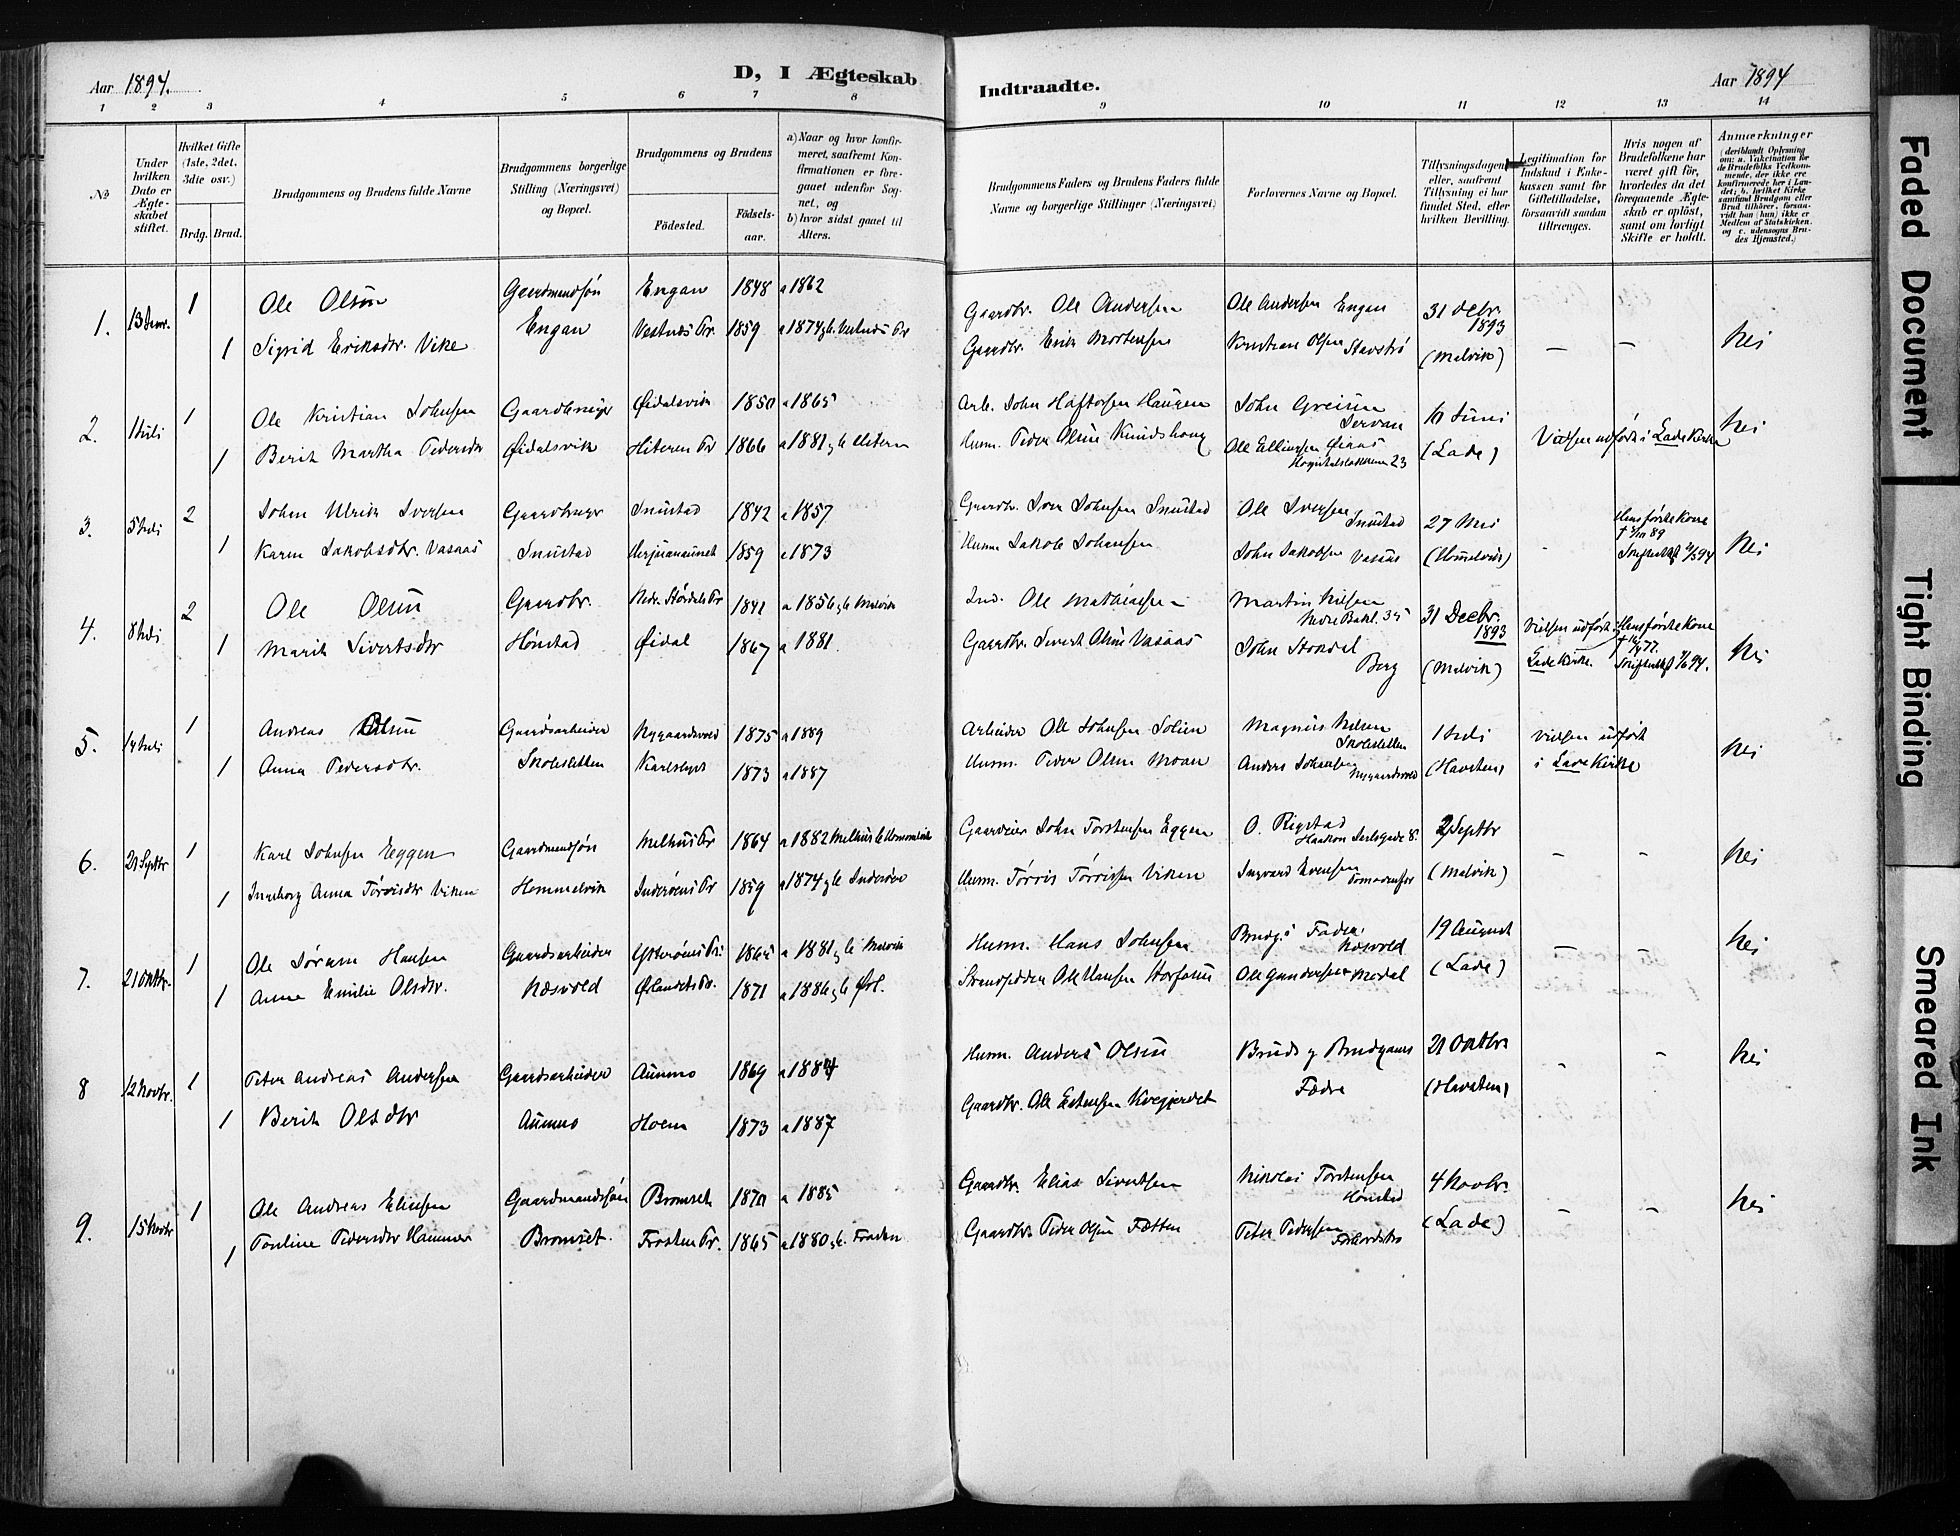 Aar 1894.
D, I Ægteskab
Indtraadte.
Aar 1894
1 2 3 4 5 6 7 8 9 10 11 12 13 14
No
Under hvilken Dato er Ægteskabet stiftet.
Hvilket Gifte (1ste, 2det, 3die osv.)
Brdg. Brud.
Brudgommens og Brudens fulde Navne
Brudgommens borgerlige Stilling (Næringsvei) og Bopæl.
Brudgommens og Brudens
Fødested.
Fødselsaar.
a) Naar og hvor konfirmeret, saafremt Konfirmationen er foregaaet udenfor Sognet, og
b) hvor sidst gaaet til Alters.
Brudgommens Faders og Brudens Faders fulde Navne og borgerlige Stillinger (Næringsvei)
Forlovernes Navne og Bopæl.
Tillysningsdagen eller, saafremt Tillysning ei har fundet Sted, efter hvilken Bevilling.
Legitimation for Indskud i Enkekassen samt for Giftetilladelse, forsaavidt saadan tiltrænges.
Hvis nogen af Brudefolkene har været gift før, hvorledes da det foregaaende Ægteskab er opløst, samt om lovligt Skifte er holdt.
Anmærkninger (deriblandt Oplysning om: a. Vakcination for de Brudefolks Vedkommende, der ikke ere konfirmerede her i Landet; b. hvilket Kirkesamfund Brudgom eller Brud tilhører, forsaavidt han (hun) ikke er Medlem af Statskirken. og c. udensogns Brudes Hjemsted.)
1. 1 Ole Olsen Gaardmandsøn Engan 1848 a 1862 Gaardbr. Ole Andersen Ole Andersen Engan 31 Decbr. 1893
1 Sigrid Eriksdtr. Vike Engan Vestnæs Pr. 1859 a 1874 Gaardbr. Erik Mortensen Olsen Stavstrø (Malvik) — — Nei
2. 1 Juli 1 Ole Kristian Johnsen Øidalsvik 1850 a 1865 Arb. John Haftorsen Haugen John 10 Juni
1 Berit Martha Pedersdtr Øidalsvik Hiteren Pr 1866 a 1881 Husm. Peder Olsen Ole Ellingsen Øiaas 23 (Lade) Vielsen udført i Lade Kirke Nei
3. 5 Juli 2 Johan Ulrik Iversen 1842 a 1857 Gaardbr. Iver Johnsen Ole Iversen 27 Mai
1 Karen Jakobsdtr. Vasaas 1859 a 1873 Husm. Jakob Johansen John Jakobsen Vasaas (Hommelvik) Hans første Kone Nei
4. 8 Juli 2 Ole Olsen Gaardbr. Nedr. Stjørdals Pr 1841 a 1856 Malvik Ind. Ole Mathiassen Martin Nilsen 35 31 Decbr. 1893
1 Marit Sivertsdtr Hønstad Øidal 1867 a 1881 Gaardbr. Sivert Olsen Vasaas John Berg (Malvik) Vielsen udført i Lade Kirke. Hans første Kone Nei
5. 14 Juli 1 Andreas Olsen Gaardsarbeider Nygaardsvold 1875 a 1889 Arbeider Ole Johnsen Solien Magnus Nilsen 1 Juli Vielsen udført
1 Anna Pedersdtr. 1873 a 1887 Husm. Peder Olsen Moan Anders Johansen Nygaardsvold i Lade Kirke Nei
6. 21 Septbr 1 Karl Johnsen Eggen Gaardmandsøn Melhus Pr 1864 a 1882 Melhus John Torstensen Eggen O. Rigstad 2 Septbr
1 Ingeborg Anna Tørrisdtr Viken Hommelvik Inderøens Pr 1859 a 1874 Inderøen Husm. Tørris Tørrissen Viken Ingvard Evensen (Malvik) — — Nei
7. 21 Oktbr. 1 Ole Hansen Gaardsarbeider Ytterøens Pr. 1865 a 1881 Malvik Husm. Hans Johnsen Brudg.s Fader, Næsvold 19 August
1 Anne Emilie Olsdtr. Næsvold Ørlandets Pr. 1871 a 1886 Ørl. Strandsidder Ole Hansen Ole Gundersen (Lade) — — Nei
8 12 Novbr. 1 Peter Andreas Andersen Gaardsarbeider Aunmo 1869 a 1884 Husm. Anders Olsen Bruds og Brudgoms 21 Oktbr.
1 Berit Olsdtr Aunmo Hoem 1873 a 1887 Gaardbr. Ole Estensen Fædre Nei
9. 15 Novbr 1 Ole Andreas Eliasen Gaardmandssøn Bromset 1870 a 1885 Gaardbr. Elias Sivertsen Nikolai Torstensen Hønstad 4 Novbr.
1 Pauline Pedersdtr Hammer Bromset. Frosten Pr. 1865 a 1880 Frosten Gaardbr. Peder Olsen Fætten Peter Pedersen (Lade) — — Nei
Faded Document
Tight Binding
Smeared Ink